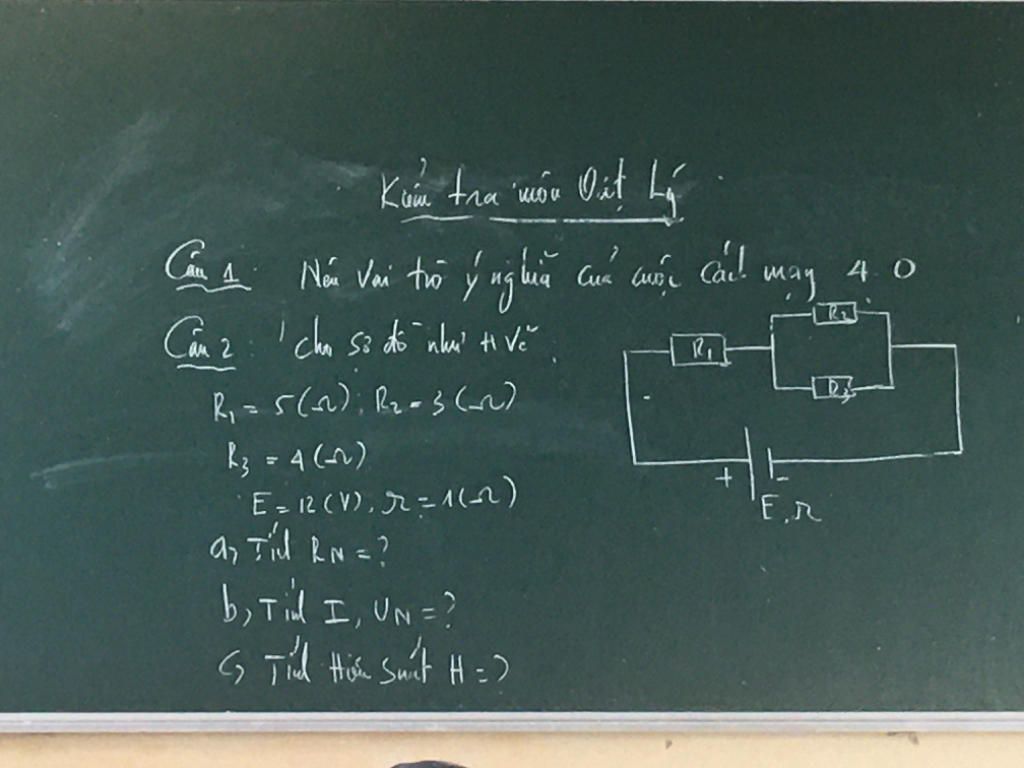 Kiểm tra môn Vật Lý
Câu 1: Nêu Vai trò ý nghĩa của cuộc cách mạng 4.0
Câu 2: cho sơ đồ như H vẽ
R1 = 5(Ω); R2 = 3(Ω)
R3 = 4(Ω)
E = 12(V), r = 1(Ω)
a, Tính RN = ?
b, Tính I, UN = ?
c, Tính Hiệu suất H = ?
R1
R2
R3
+ -
E, r